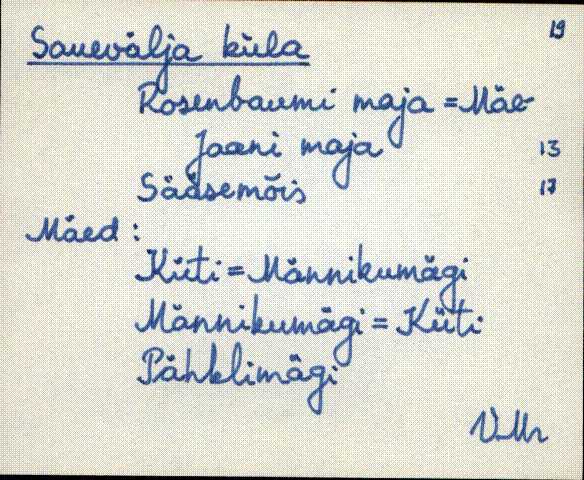 19
Sauevälja küla
Rosenbaumi maja = Mäe-
Jaani maja 13
Sääsemõis 17
Mäed :
Küti = Männikumägi
Männikumägi = Küti
Pähklimägi
V.Mr